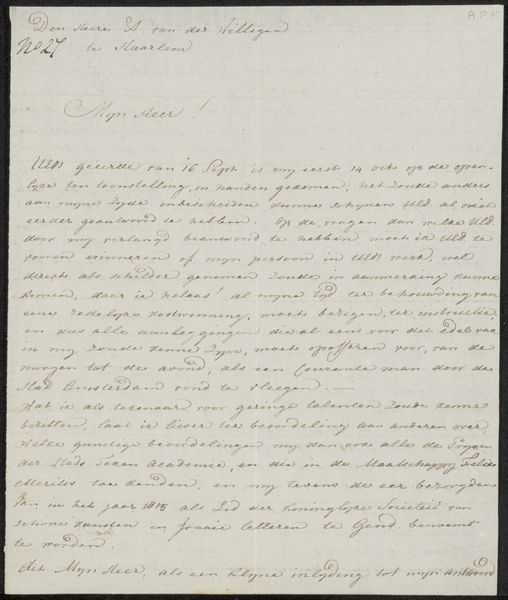 RPK
Den Heere A. van der Willigen
No 27. te Haarlem
Mijn Heer!
UEds geëerde van 16 Sept. is my eerst 14 octo op de open-
lyke ten toonstelling, in handen gekomen; het zoude anders
aan myne zyde onbescheiden kunne schynen UEd. al niet
eerder geantwoord te hebben. Op de vragen dan welke UEd.
door my verlangd beantwoord te hebben moet ik UEd. te
vooren erinneren of mijn persoon in UEds werk, wel
directs als schilder genomen zoude in aanmerking kunne
komen, daar ik helaas! al myne tyd ter behouding van
eene zedelyke kostwinning, moet bezigen, ter instructie,
en dus alle aanleggingen die al eens voor dit edel vak
in my zoude kunne zyn, moets opofferen voor, van de
morgen tot de avond, als een Courante man door de
Stad Amsterdam rond te vliegen. —
Wat ik als tekenaar voor geringe talenten zoude kunne
bezitten, laat ik liever ter beoordeling aan anderen over,
Welke gunstige beoordelingen my dan ook alle de Pryzen
der Stads Teken Academie, en die in de Maatschappy Felix
Meritis toe kenden; en my tevens de eer bezorgden
van in het jaar 1815 als Lid der Koninglyke Societeit van
schone kunsten en fraaie letteren te Gend. benoemt
te worden.
dit Mijn Heer, als een klyne inlyding tot mijn antwoord